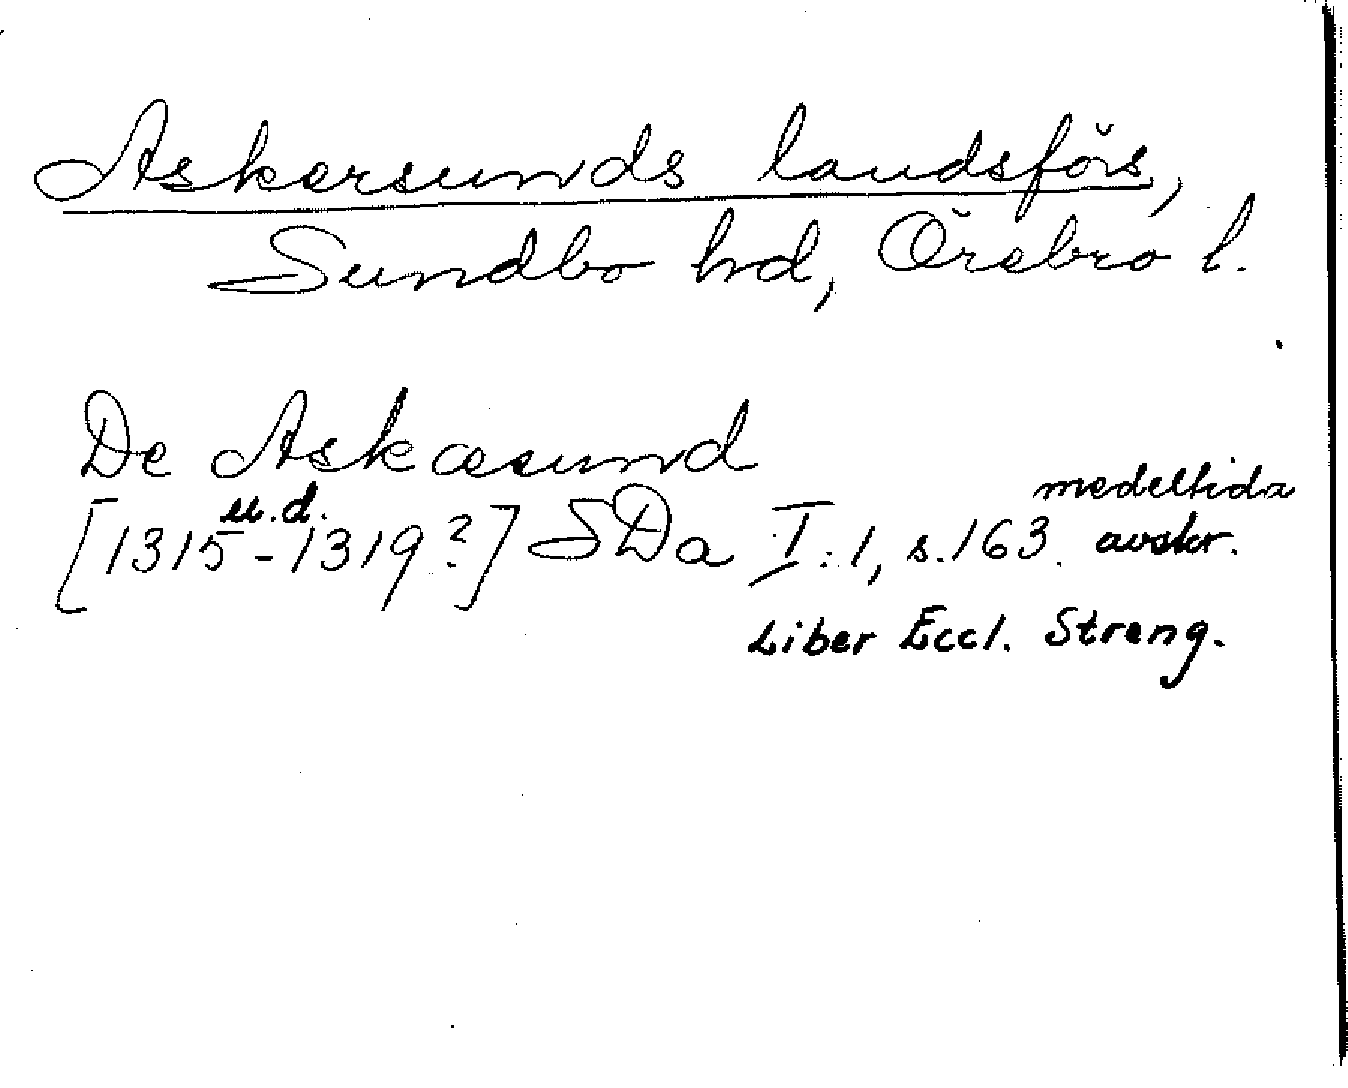 Askersunds landsförs,
Sundbo hd, Örebro l.
De Askæsund
u.d.
[1315-1319?] SDa I:1, s.163. medeltida avskr.
Liber Eccl. Streng.